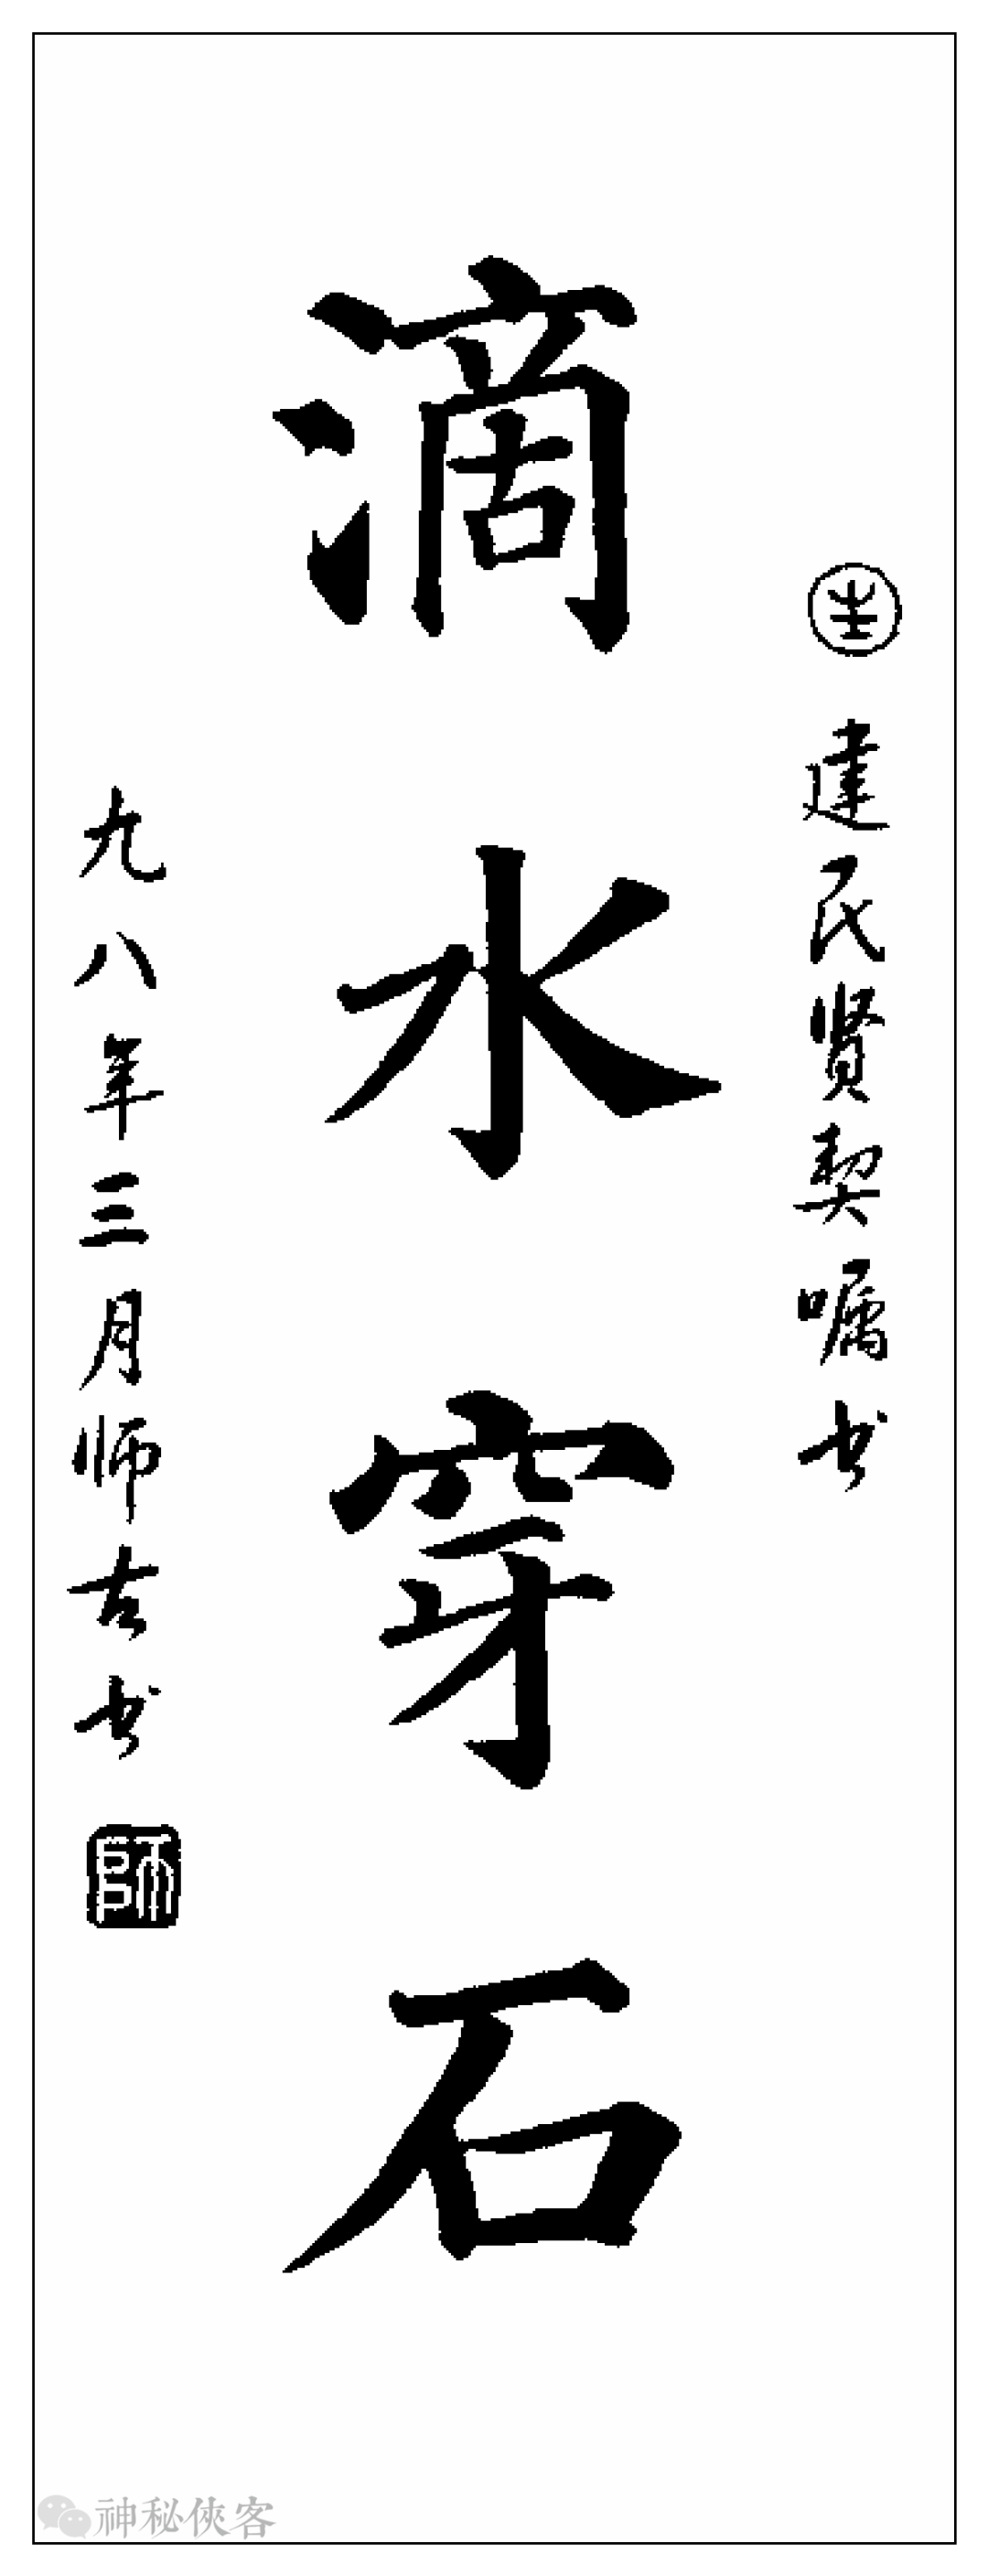 建民贤契嘱书
滴水穿石
九八年三月师古书
师
神秘侠客